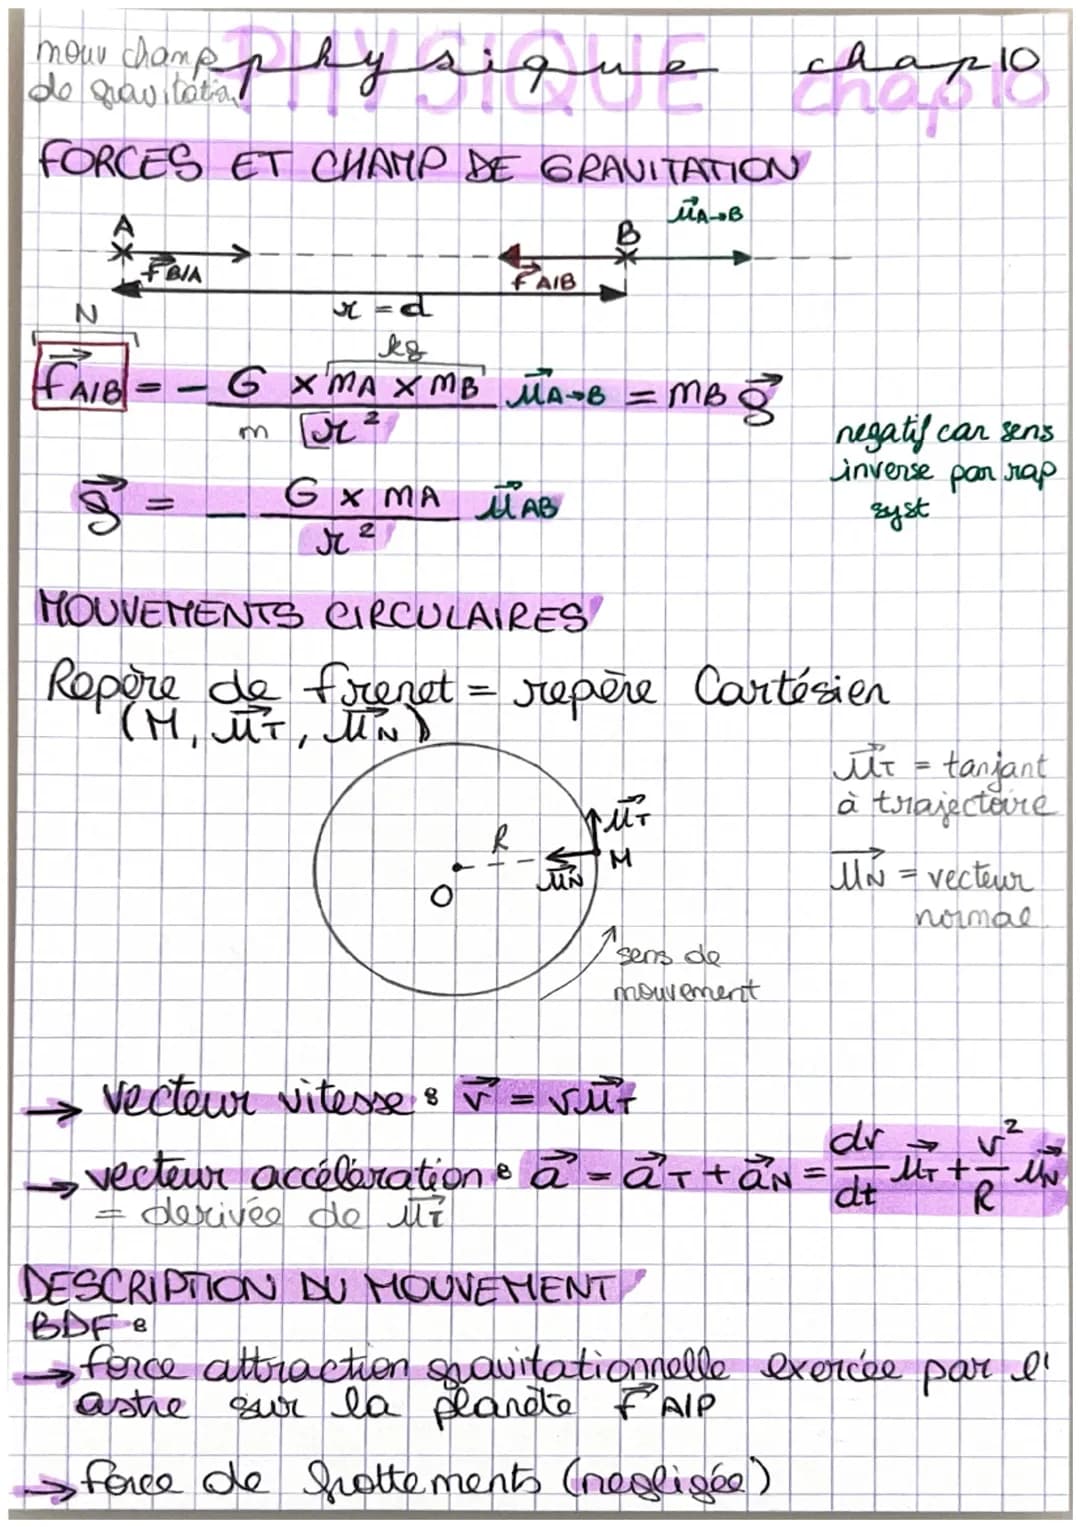 mouv champ physique chap 10
de gravitation PHYSIQUE chap 10
FORCES ET CHAMP DE GRAVITATION
A B u⃗A→B
F⃗B/A F⃗A/B
r = d
N kg
F⃗A/B = - G × mA × mB / r² u⃗A→B = mB g⃗
m
negatif car sens
inverse par rap
syst
g⃗ = - G × mA / r² u⃗AB
MOUVEMENTS CIRCULAIRES
Repère de frenet = repère Cartésien
(M, u⃗T, u⃗N)
u⃗T = tanjant
à trajectoire
u⃗N = vecteur
normal
R u⃗T
O u⃗N M
sens de
mouvement
→ vecteur vitesse : v⃗ = v u⃗T
→ vecteur accélération : a⃗ = a⃗T + a⃗N = dv/dt u⃗T + v²/R u⃗N
= derivée de u⃗T
DESCRIPTION DU MOUVEMENT
BDF :
→ force attraction gravitationnelle exercée par l'
astre sur la planète F⃗A/P
→ force de frottements (negligée)